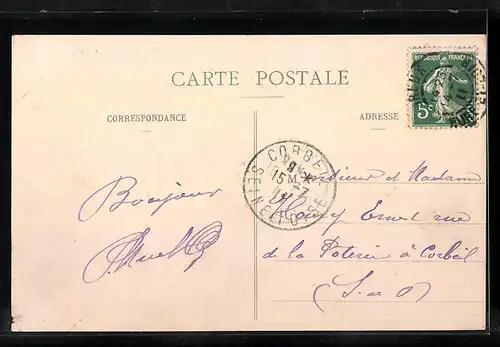 CARTE POSTALE
CORRESPONDANCE
ADRESSE
REPUBLIQUE FRANÇAISE
5c
CORBEIL
SEINE-ET-OISE
Bonjour
Monsieur et Madame
Henry Ernest rue
de la Poterie à Corbeil
(S. et O)